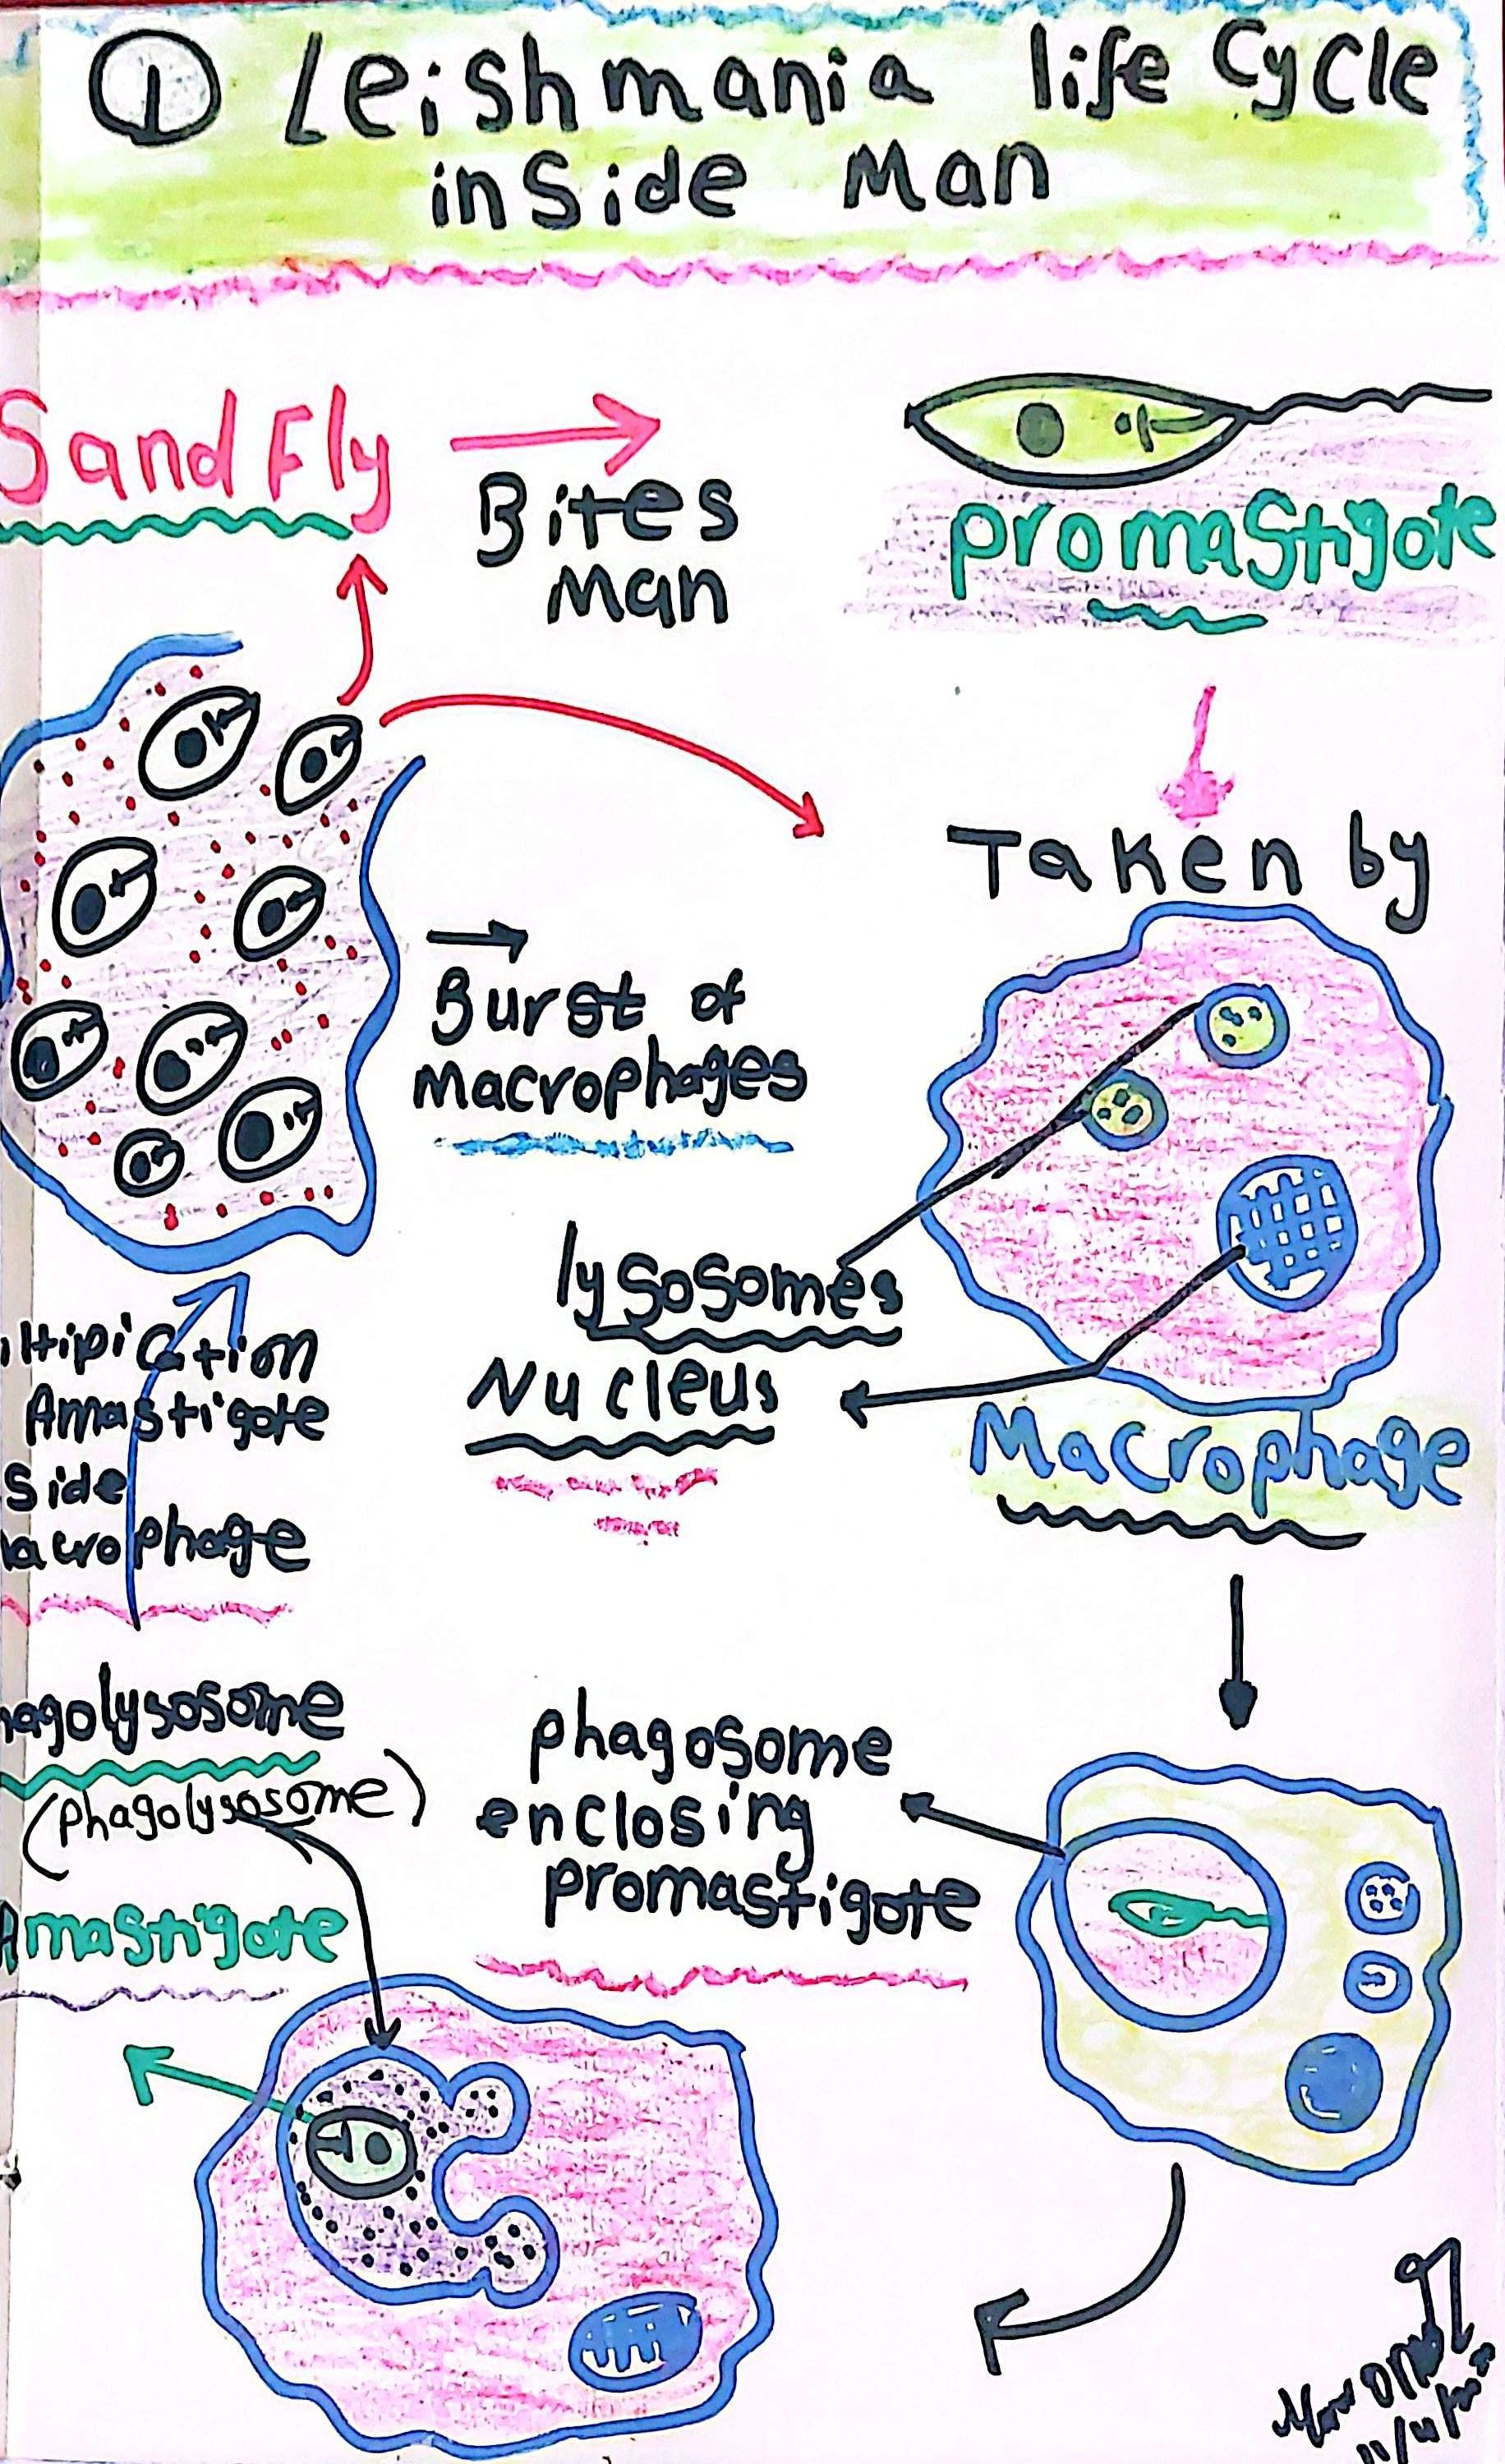 ① Leishmania life Cycle
inside Man
Sand Fly
Bites
Man
promastigote
Taken by
Burst of
Macrophages
lysosomes
Nucleus
Macrophage
ltipication
Amastigote
Side
acrophage
hagolysosome
(phagolysosome)
Amastigote
phagosome
enclosing
promastigote